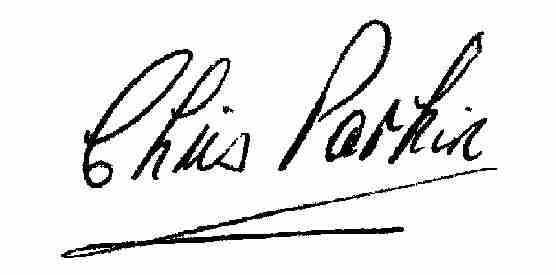 Chris Parkin